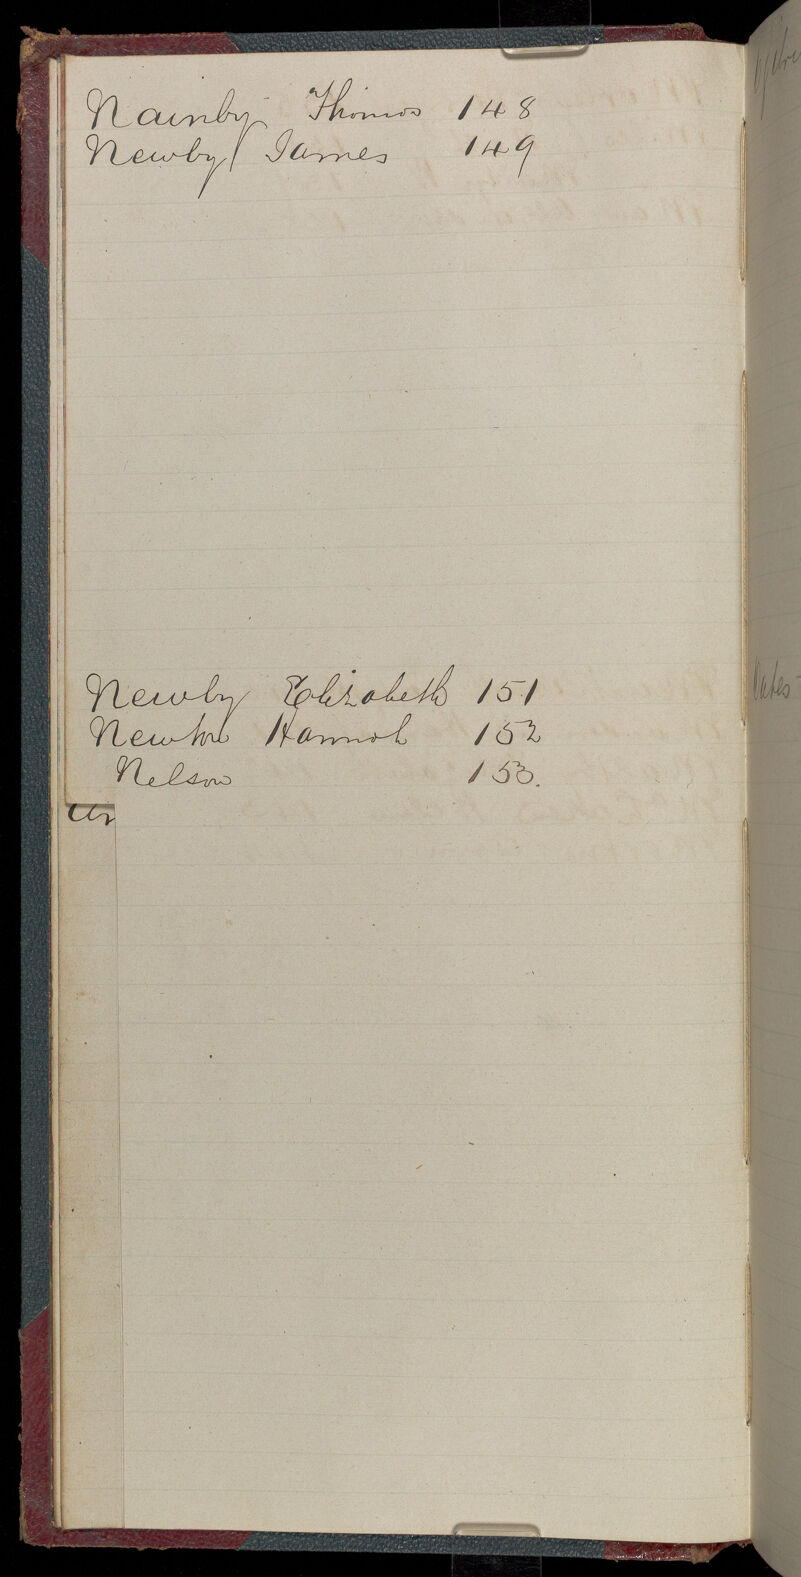 Nainby Thomas 148
Newby James 149
Newby Elizabeth 151
Newton Hannah 152
Nelson 153.